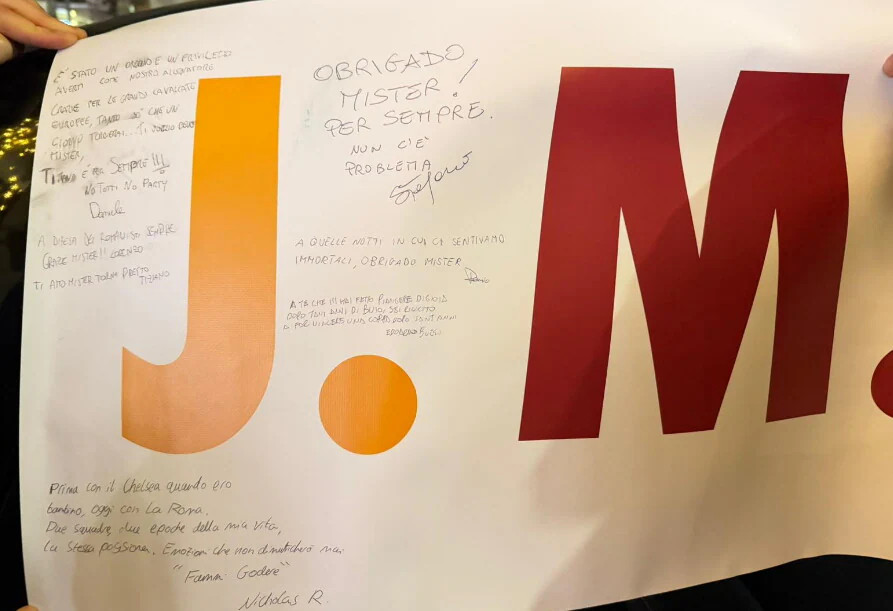 È STATO UN ONORE E UN PRIVILEGIO
AVERTI COME NOSTRO ALLENATORE
GRAZIE PER LE GRANDI CAVALCATE
EUROPEE, CHE UN
GIORNO TORNERAI... TI
MISTER,
È PER SEMPRE !!!
NO TOTTI NO PARTY
Daniele
A DIFESA DEL ROMANISMO SEMPRE
GRAZIE MISTER!! LORENZO
TI AMO MISTER TORNA PRESTO
TIZIANO
OBRIGADO
MISTER!
PER SEMPRE.
NON C'È
PROBLEMA
Stefano
A QUELLE NOTTI IN CUI CI SENTIVAMO
IMMORTALI, OBRIGADO MISTER
A TE CHE MI HAI FATTO PIANGERE DI GIOIA
DOPO TANTI ANNI DI BUIO, SEI RIUSCITO
A FAR VINCERE UNA COPPA DOPO ANNI
J. M.
Prima con il Chelsea quando ero
bambino, oggi con La Roma.
Due squadre, due epoche della mia vita,
la stessa posizione. Emozioni che non dimenticherò mai
"Fammi Godere"
Nicholas R.